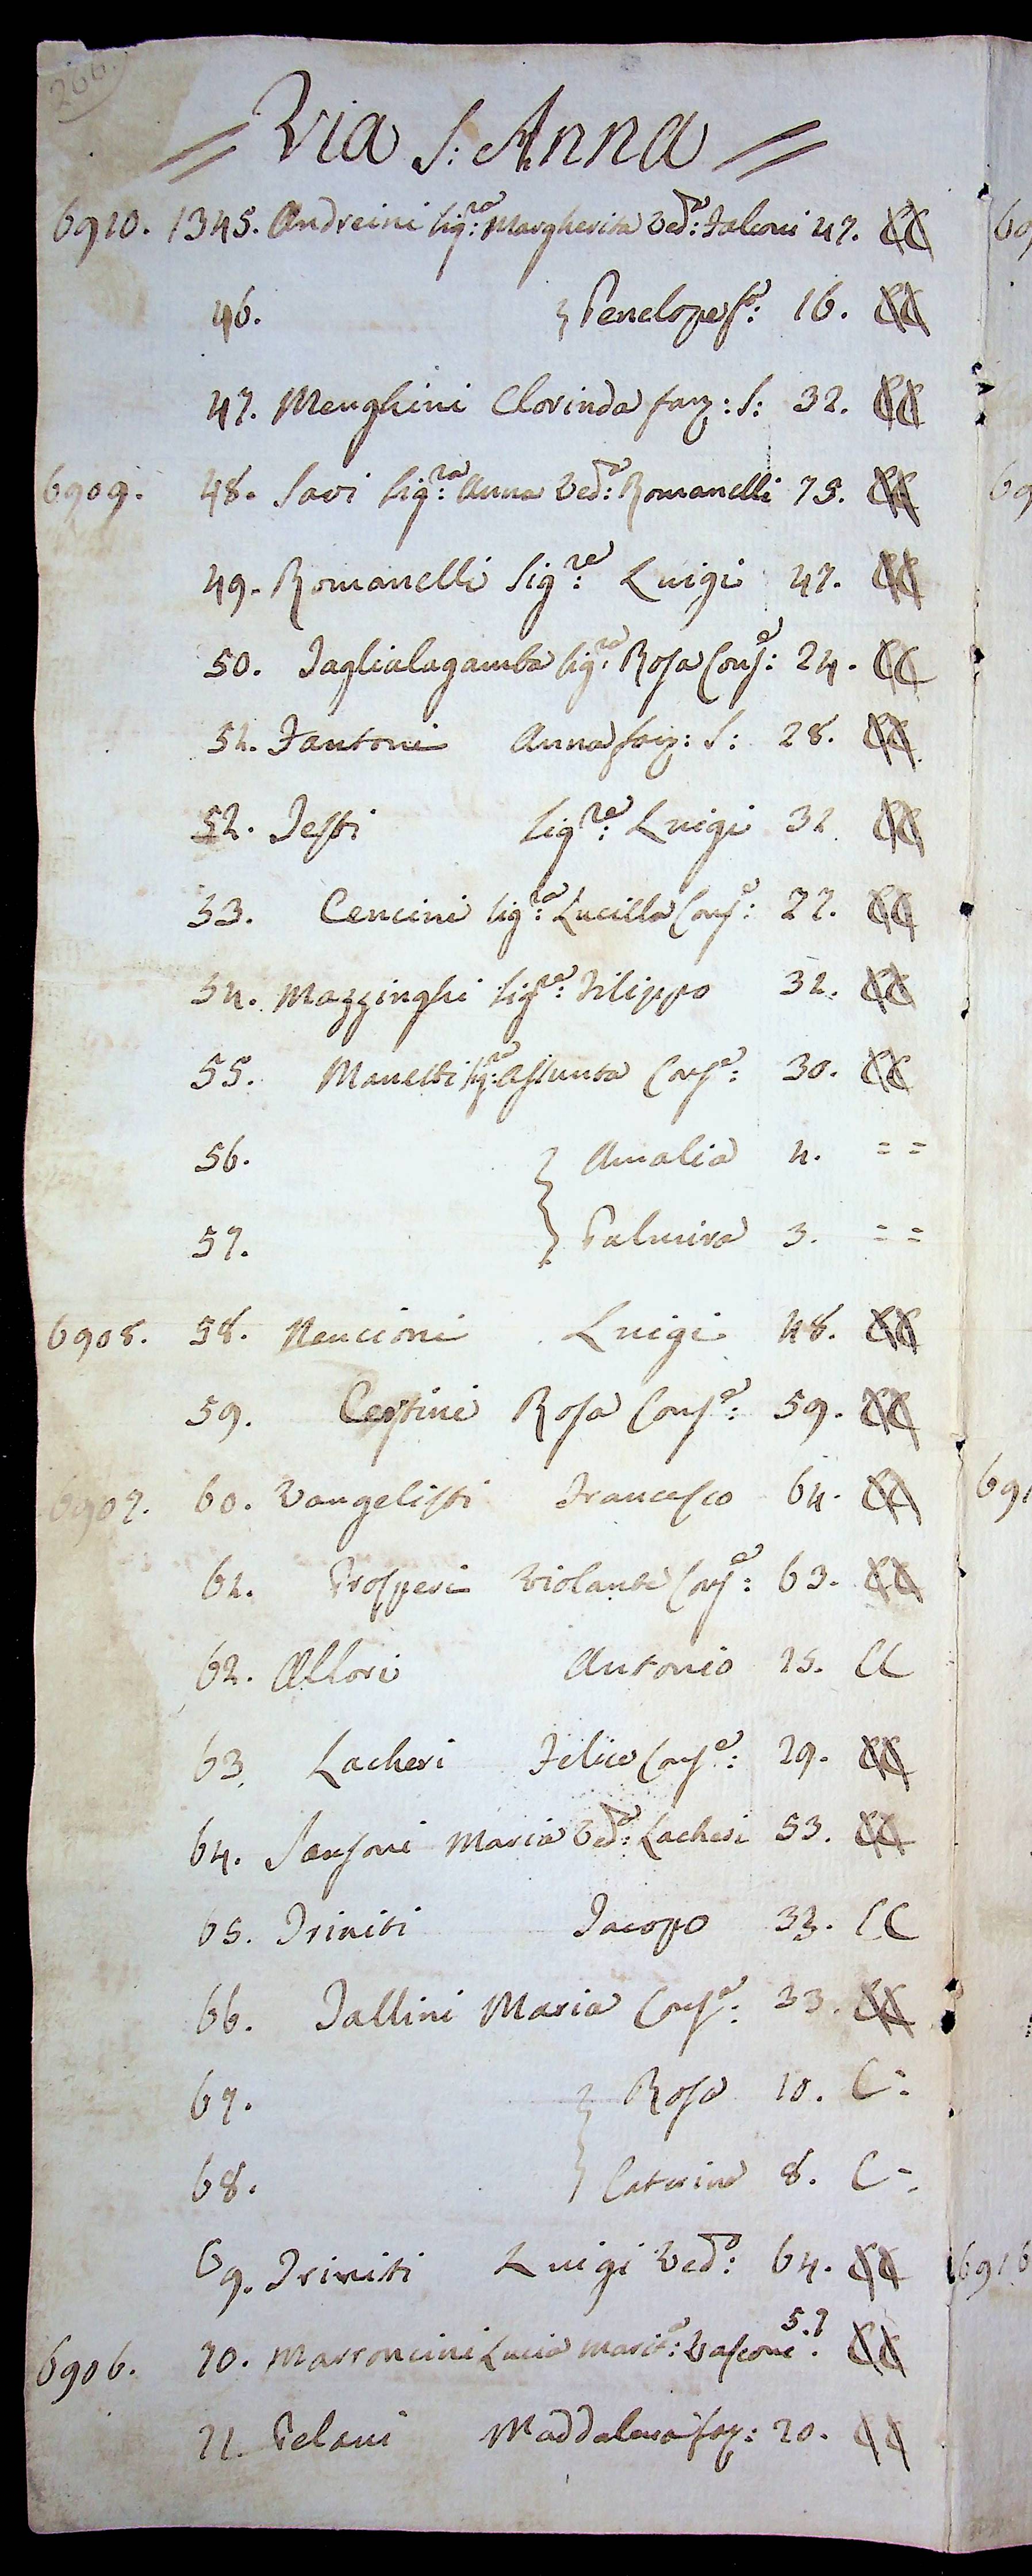 266.
= Via S: Anna =
6910. 1345. Andreini Sig:ra Margherita Ved:a Falconi 47. CC
46. } Penelope f:a 16. CC
47. Menghini Clorinda fanz: S: 32. CC
6909. 48. Savi Sig:ra Anna Ved:a Romanelli 75. CC
49. Romanelli Sig:re Luigi 47. CC
50. Taglialagamba Sig:ra Rosa Cons:e 24. CC
51. Fantoni Anna fanz: S: 28. CC
52. Testi Sig:re Luigi 32 CC
53. Cencini Sig:ra Lucilla Cons:e 22. CC
54. Mazzinghi Sig:re Filippo 32. CC
55. Manetti Sig:ra Assunta Cons:e 30. CC
56. } Amalia 4. = =
57. Palmira 3. = =
6908. 58. Nencioni Luigi 48. CC
59. Cestini Rosa Cons:e 59. CC
6907. 60. Vangelisti Francesco 64. CC
61. Prosperi Violante Cons:e 63. CC
62. Allori Antonio 25. CC
63. Lacheri Felice Cons:e 29. CC
64. Sansoni Maria Ved:a Lacheri 53. CC
65. Triniti Jacopo 33. CC
66. Tallini Maria Cons:e 33. CC
67. } Rosa 10. C=
68. Caterina 8. C=
69. Triniti Luigi Ved:o 64. CC
6906. 70. Marroncini Lucia Marit:a Vasconi 57. CC
71. Pelani Maddalena fan: 20. CC